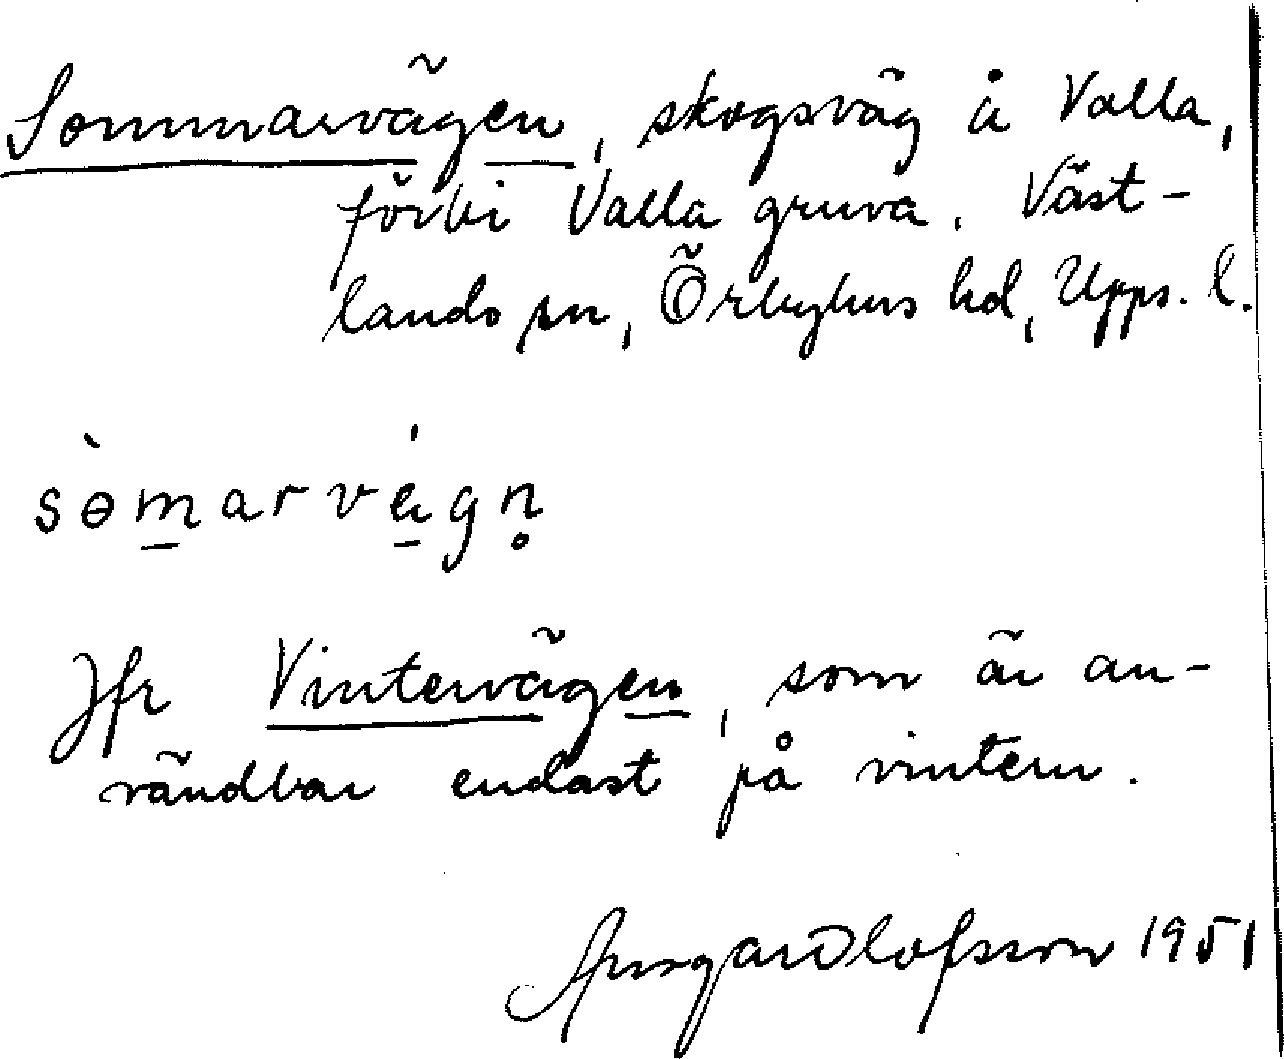 Sommarvägen, skogsväg å Valla,
förbi Valla gruva. Väst-
lands sn, Örbyhus hd, Upps. l.
sòmarvágn̥
Jfr Vintervägen, som är an-
vändbar endast på vintern.
Ansgar Olofsson 1951